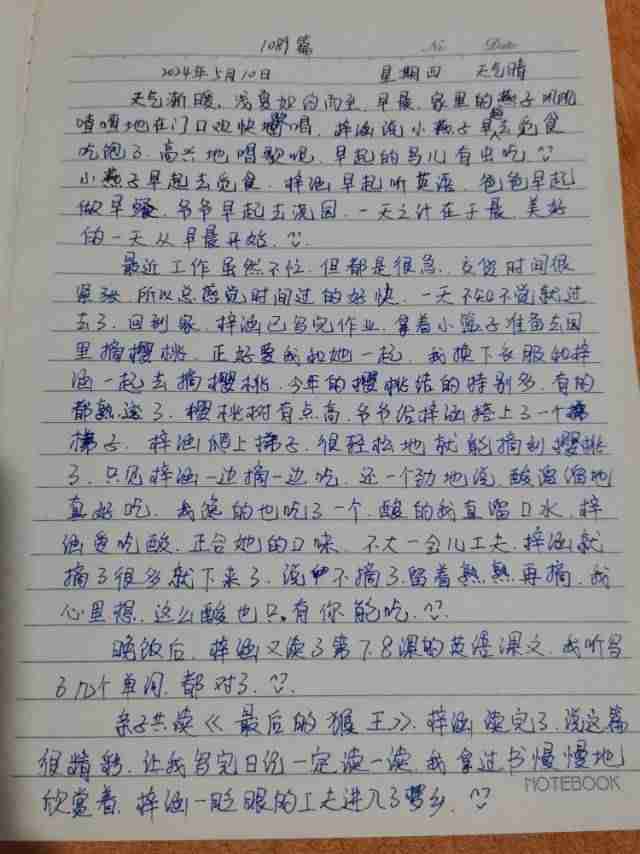 1089篇
No Date
2024年5月10日 星期四 天气晴
天气渐暖,浅夏如约而至,早晨,家里的燕子叽叽
喳喳地在门口欢快地歌唱,梓涵说小燕子早起去觅食
吃饱了,高兴地唱歌呢,早起的鸟儿有虫吃,
小燕子早起去觅食,梓涵早起听英语,爸爸早起
做早餐,爷爷早起去浇园,一天之计在于晨,美好
的一天从早晨开始,
最近工作虽然不忙,但都是很急,交货时间很
紧张,所以总感觉时间过的好快,一天不知不觉就过
去了,回到家,梓涵已写完作业,拿着小篮子准备去园
里摘樱桃,正好要我和她一起,我换下衣服和梓
涵一起去摘樱桃,今年的樱桃结的特别多,有的
都熟透了,樱桃树有点高,爷爷给梓涵搭上了一个
梯子,梓涵爬上梯子,很轻松地就能摘到樱桃
了,只见梓涵一边摘一边吃,还一个劲地说,酸溜溜地
真好吃,我馋的也吃了一个,酸的我直留口水,梓
涵爱吃酸,正合她的口味,不大一会儿工夫,梓涵就
摘了很多就下来了,说不摘了留着熟熟再摘,我
心里想,这么酸也只有你能吃,
晚饭后,梓涵又读了第7.8课的英语课文,我听写
了几个单词,都对了,
亲子共读《最后的猴王》,梓涵读完了,说这篇
很精彩,让我写完日记一定读一读,我拿过书慢慢地
欣赏着,梓涵一眨眼的工夫进入了梦乡,
NOTEBOOK